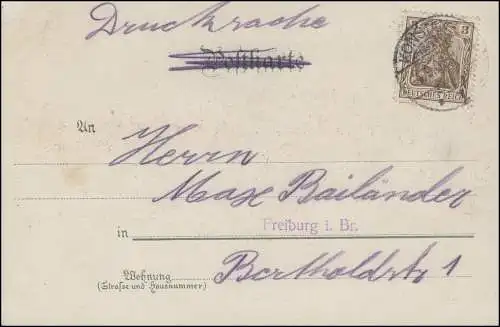 Drucksache
Postkarte
3
DEUTSCHES REICH
An
Herrn
Max Bailänder
in Freiburg i. Br.
Wohnung Bertholdstr 1
(Straße und Hausnummer)